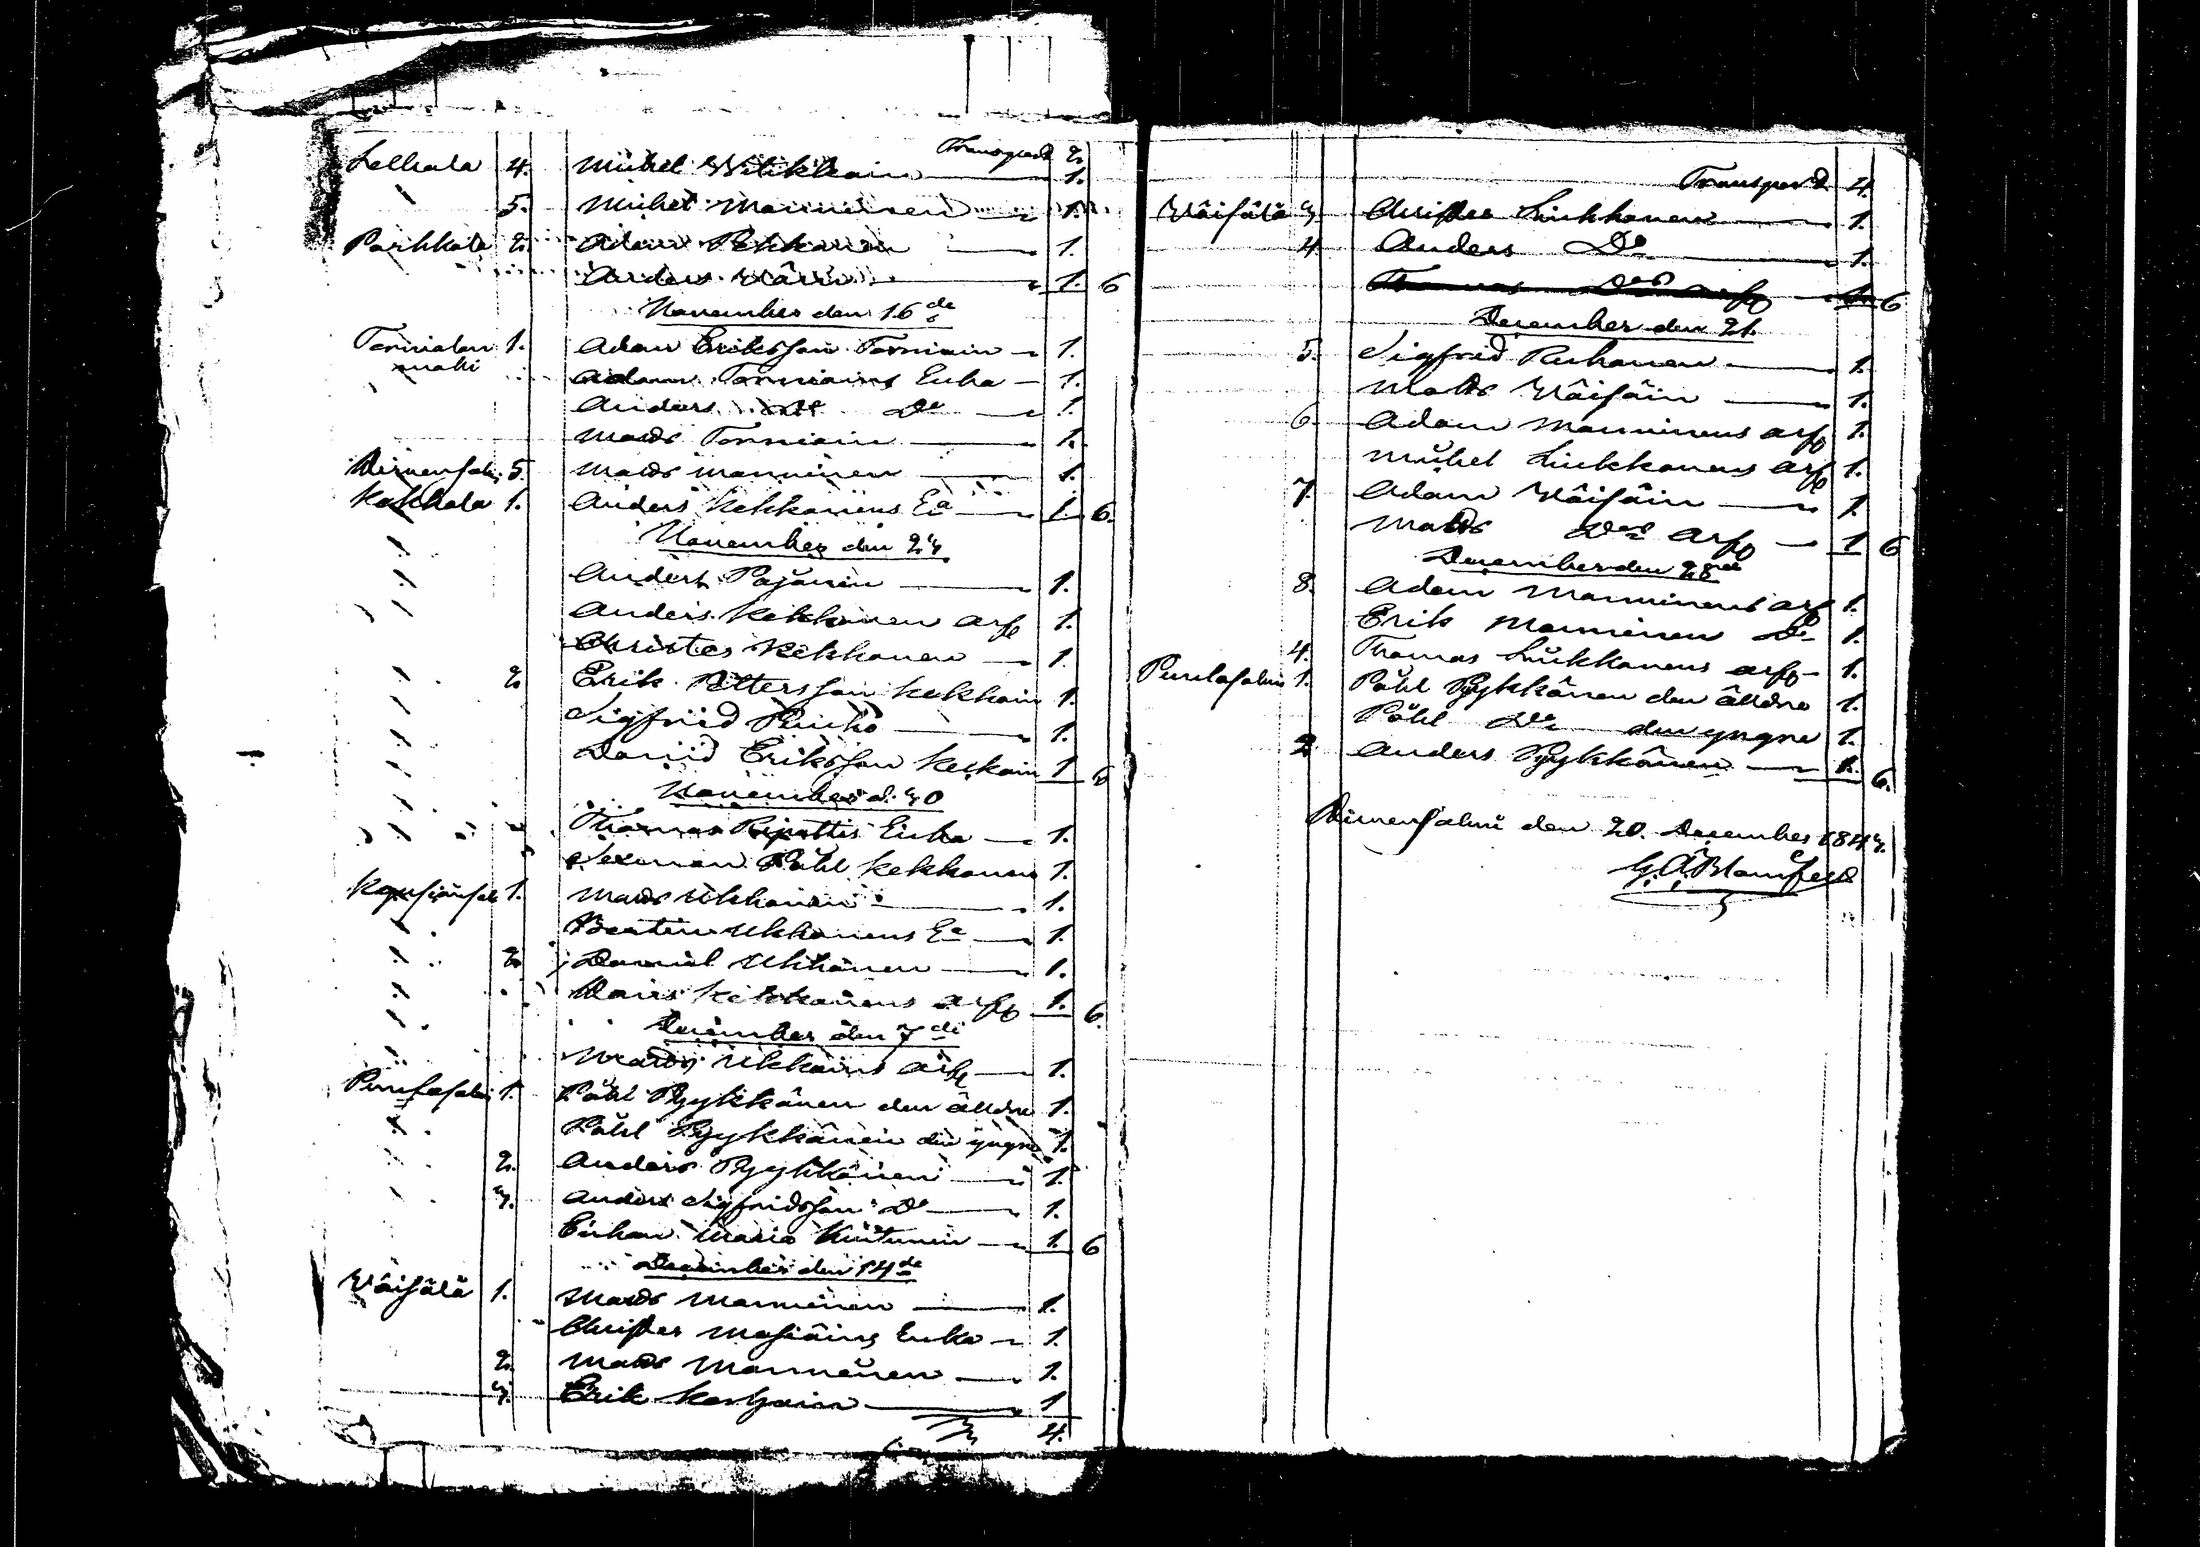 Transport 2.
Lelkala 4. Mickel Wilikkain 1.
5. Mickel Manninen 1.
Parkkala 2. Adam Pekkanen 1.
Anders Wärri 1. 6
November den 16de
Tornialan 1. Adam Eriksson Torniain 1.
mäki Adam Torniains Enka 1.
Anders Do Do 1.
Mats Torniain 1.
Wirmensalmi 5. Mats Manninen 1.
Kekkola 1. Anders Kekkonens Ea 1. 6.
November den 23
Anders Pajunen 1.
Anders Kekkonen arfg 1.
Christer Kekkonen 1.
2. Erik Pettersson Kekkoin 1.
Sigfrid Ruuho 1.
David Eriksson Kekkoin 1 6
November d. 30
Thomas Ripattis Enka 1.
Sexman Påhl Kekkonen 1.
1. Mats Ukkonen 1.
Ukkonens Ea 1.
2. Daniel Ukkonen 1.
Kekkonens arfg 1. 6.
December den 7de
Mats Ukkoins arfg 1.
Purdasalmi 1. Påhl Pyykkönen den älldre 1.
Påhl Pyykkönen den yngre 1.
2. Anders Pyykkönen 1.
3. Anders Sigfridsson Do 1.
Enkan Maria Kuitunen 1. 6
December den 14de
Wäisälä 1. Mats Manninen 1.
Christer Masiäins Enka 1.
2. Mats Manninen 1.
3. Erik Karhain 1
4.
Transport 4.
Wäisälä 3. Christer Liukkonen 1.
4. Anders Do 1.
Thomas Dos arfg 6
December den 21.
5. Sigfrid Ruhanen 1.
Mats Wäisäin 1.
6. Adam Manninens arfg 1.
Mickel Liukkonens arfg 1.
7. Adam Wäisäin 1.
Mats Dos arfg 1 6
December den 28de
8. Adam Manninens arfg 1.
Erik Manninen Do 1.
4. Thomas Liukkonens arfg 1.
Purdasalmi 1. Påhl Pyykkönen den älldre 1.
Påhl Do den yngre 1.
2 Anders Pyykkönen 1. 6.
Wirmensalmi den 20. December 1843.